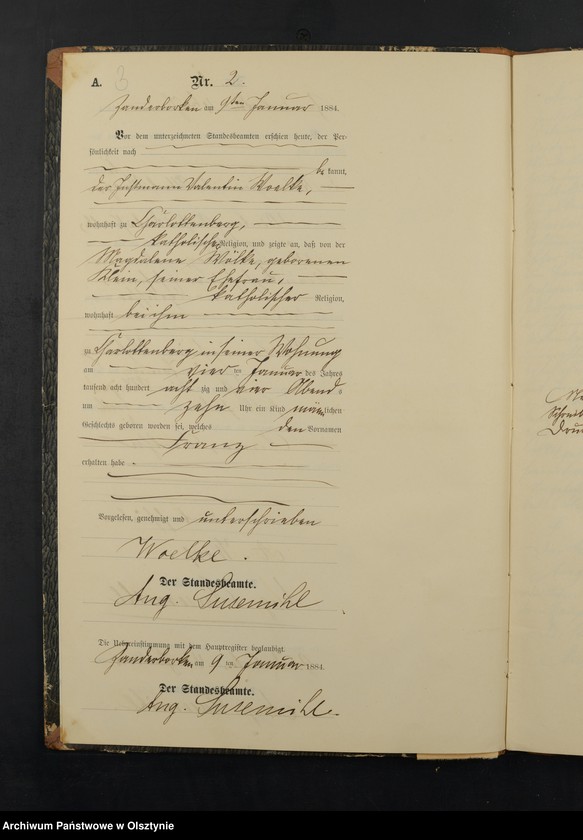 A. 3 Nr. 2.
Zanderborken am 9ten Januar 1884.
Vor dem unterzeichneten Standesbeamten erschien heute, der Per-
sönlichkeit nach
be kannt,
der Instmann Valentin Woelke,
wohnhaft zu Charlottenberg,
katholischer Religion, und zeigte an, daß von der
Magdalena Wölke, geborenen
Klein, seiner Ehefrau,
katholischer Religion,
wohnhaft bei ihm
zu Charlottenberg in seiner Wohnung
am vier ten Januar des Jahres
tausend acht hundert acht zig und vier Abends
um zehn Uhr ein Kind männlichen
Geschlechts geboren worden sei, welches den Vornamen
Franz
erhalten habe.
Vorgelesen, genehmigt und unterschrieben
Woelke.
Der Standesbeamte.
Aug. Susemihl
Die Uebereinstimmung mit dem Hauptregister beglaubigt.
Zanderborken am 9 ten Januar 1884.
Der Standesbeamte.
Aug. Susemihl.
Archiwum Państwowe w Olsztynie